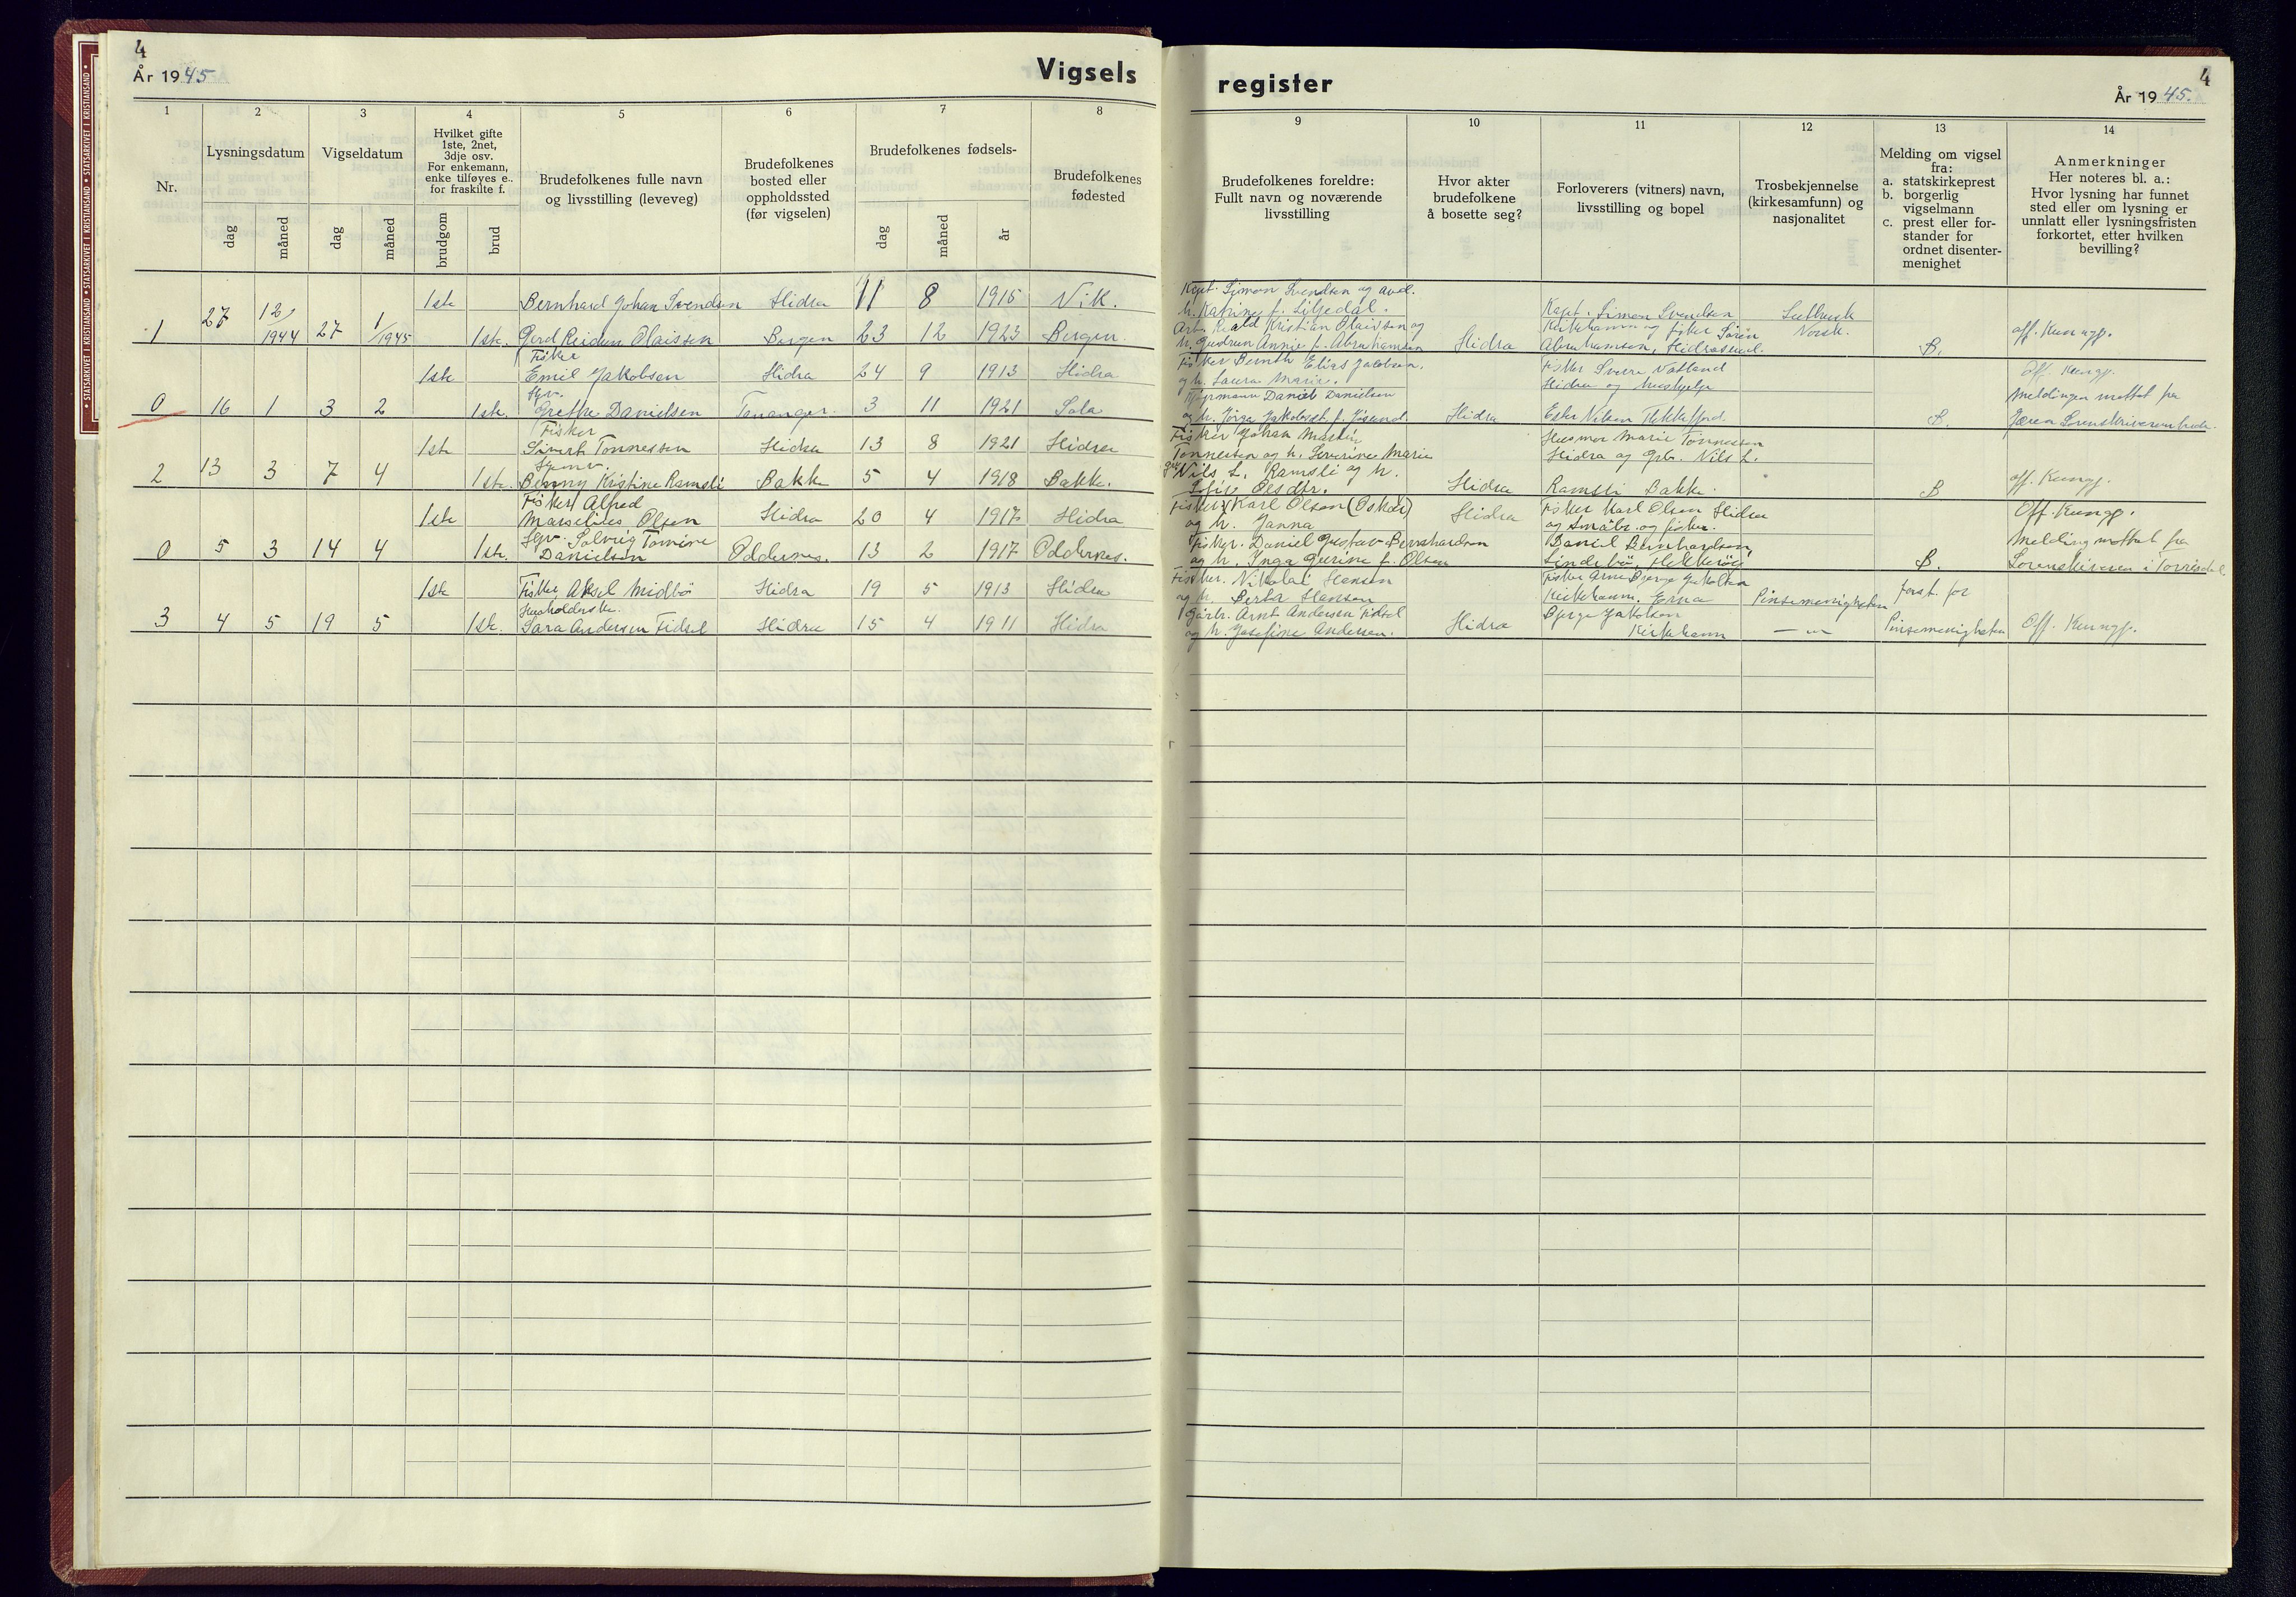 4
År 1945
Vigsels
register
År 1945.
4
STATSARKIVET I KRISTIANSAND • STATSARKIVET I KRISTIANSAND • STATSARKIVET I KRISTIANSAND
1 2 3 4 5 6 7 8
Nr.
Lysningsdatum
dag måned
Vigseldatum
dag måned
Hvilket gifte
1ste, 2net,
3dje osv.
For enkemann,
enke tilføyes e..
for fraskilte f.
brudgom brud
Brudefolkenes fulle navn
og livsstilling (leveveg)
Brudefolkenes
bosted eller
oppholdssted
(før vigselen)
Brudefolkenes fødsels-
dag måned år
Brudefolkenes
fødested
9 10 11 12 13 14
Brudefolkenes foreldre:
Fullt navn og noværende
livsstilling
Hvor akter
brudefolkene
å bosette seg?
Forloverers (vitners) navn,
livsstilling og bopel
Trosbekjennelse
(kirkesamfunn) og
nasjonalitet
Melding om vigsel
fra:
a. statskirkeprest
b. borgerlig
vigselmann
c. prest eller for-
stander for
ordnet disenter-
menighet
Anmerkninger
Her noteres bl. a.:
Hvor lysning har funnet
sted eller om lysning er
unnlatt eller lysningsfristen
forkortet, etter hvilken
bevilling?
1ste Bernhard Johan Svendsen Hidra 11 8 1915 Vik.
1 27 12/1944 27 1/1945 1ste. Gerd Reidun Olaissen Bergen 23 12 1923 Bergen.
Fisker
1ste Emil Jakobsen Hidra 24 9 1913 Hidra
0 16 1 3 2 1ste. Grethe Danielsen Tananger. 3 11 1921 Sola
Fisker
1ste Sivert Tønnessen Hidra 13 8 1921 Hidra
2 13 3 7 4 1ste. Benny Kristine Ramsli Bakke 5 4 1918 Bakke.
Fisker Alfred
1ste Marselius Olsen Hidra 20 4 1917 Hidra
Solvig Tomine
0 5 3 14 4 1ste. Danielsen Oddernes. 13 2 1917 Oddernes.
1ste Fisker Aksel Midbö Hidra 19 5 1913 Hidra
Husholderske.
3 4 5 19 5 1ste. Sara Andersen Fidsel Hidra 15 4 1911 Hidra
Kapt. Simon Svendsen og avd.
h. Katrine f. Liljedal.
Kristian Olaissen og
h. Gudrun Annie f. Abrahamsen
Hidra
Kapt. Simon Svendsen
Kirkehamn og fisker Sørin
Abrahamsen, Hidrasund.
Luthersk
Norsk.
B.
off. Kunngj.
Fisker Bernth Elias Jacobsen.
og h. Laura Marie.
Daniel Danielsen
og h.
Hidra
Fisker Sverre Natland
Hidra og hushjelp
Ester Nilsen Flekkefjord.
B.
Off. Kunngj.
Meldingen mottat fra
Jæren Sorenskriverembede.
Fisker Johan Martin
Tønnessen og h. Severine Marie
Nils L. Ramsli og h.
Sofie Olsdtr.
Hidra
Husmor Marie Tønnessen
Hidra og Grb. Nils L.
Ramsli Bakke.
B
off. Kunngj.
Fisker Karl Olsen (Oskar)
og h. Janna
Hidra
Fisker Karl Olsen Hidra
og Småbr. og fisker.
Fisker. Daniel Gustav Bernhardsen
og h. Inga Gurine f. Olsen
Daniel Bernhardsen,
Lindebö, Flekkeröy
B.
Off. Kunngj.
Melding mottat fra
Sorenskriveren i Torridal.
Fisker. Nikolai Hansen
og h. Berta Hansen
Gårbr. Arnt Andersen Fidsel
og h. Josefine Andersen.
Hidra
Fisker Arne Bjerge Jakobsen
Kirkehamn. Erna
Bjerge Jakobsen
Kirkehamn
Pinsemenigheten
— " —
Forst. for
Pinsemenigheten
Off. Kunngj.